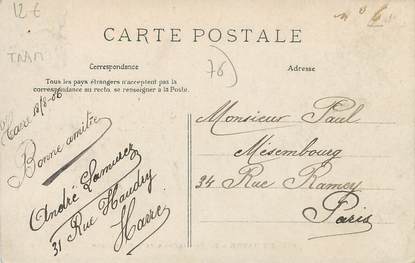 12€
TMM
76)
CARTE POSTALE
Correspondance
Tous les pays étrangers n'acceptent pas la
correspondance au recto. se renseigner à la Poste.
Adresse
18/8-06
Bonne amitié
André
31 Rue Haudry
Havre
Monsieur Paul
Mésembourg
34 Rue Ramey
Paris